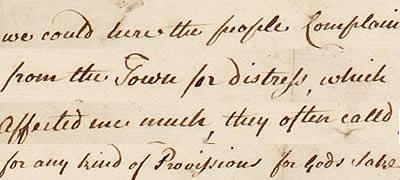 we could here the people Complain
from the Town for distress, which
affected me much, they often called
for any kind of Provissions for Gods sake